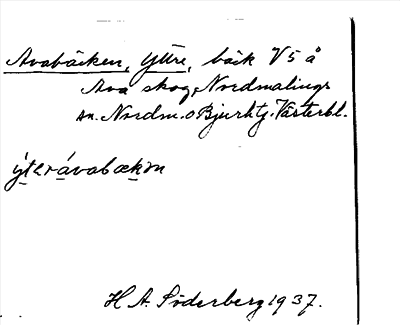 Avabäcken, Yttre, bäck V 5 å
Ava skog, Nordmalings
sn. Nordm. o Bjurh tg. Västerbl.
ýtər ávabækən
H. A. Söderberg 1937.